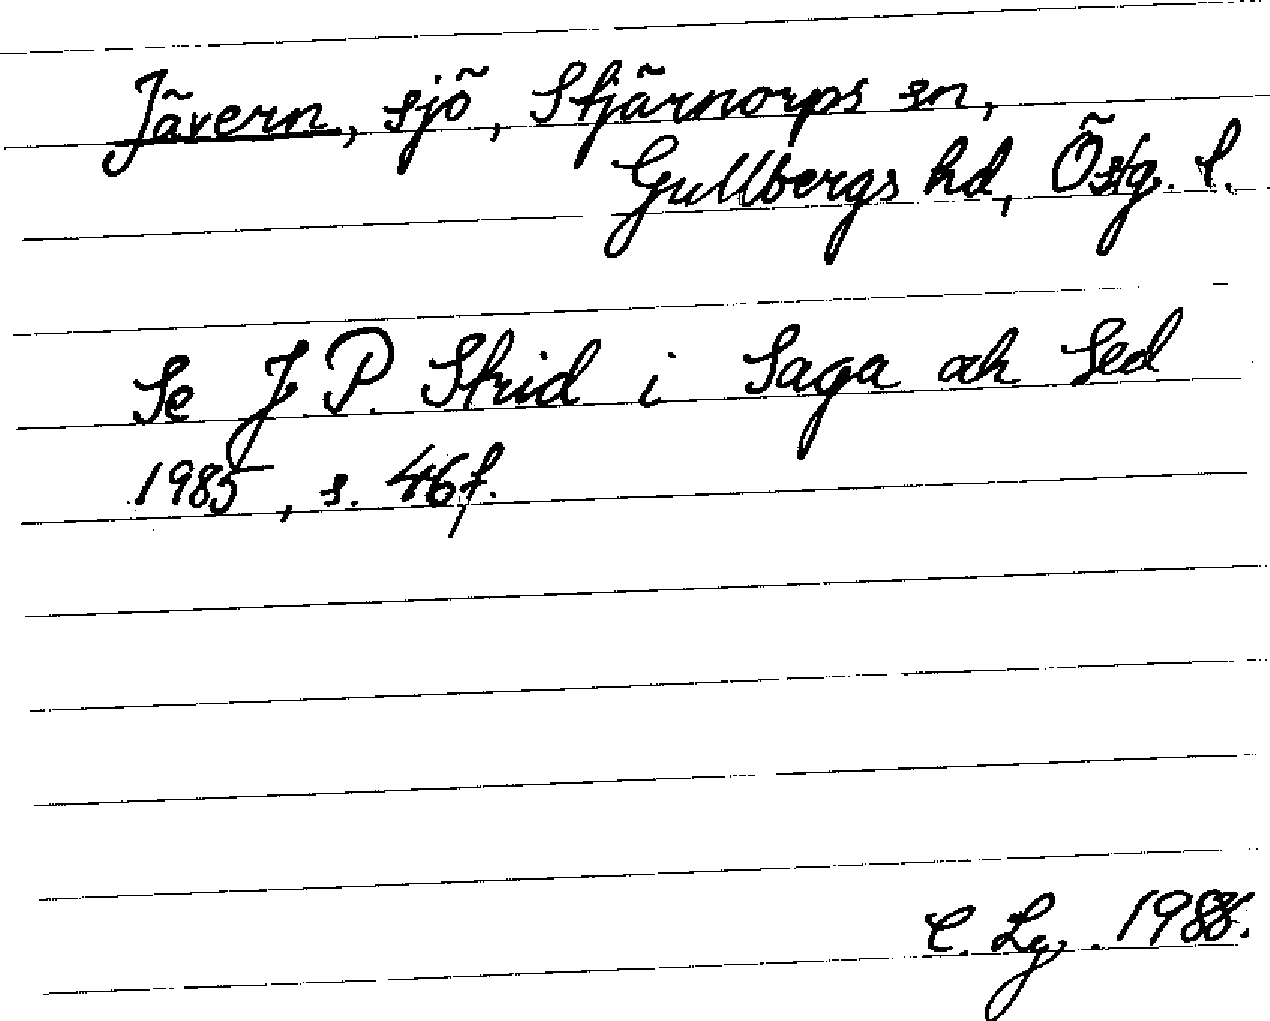 Jävern, sjö, Stjärnorps sn,
Gullbergs hd, Östg. l.
Se J P. Strid i Saga och Sed
1985, s. 46 f.
C. Lg. 1988.